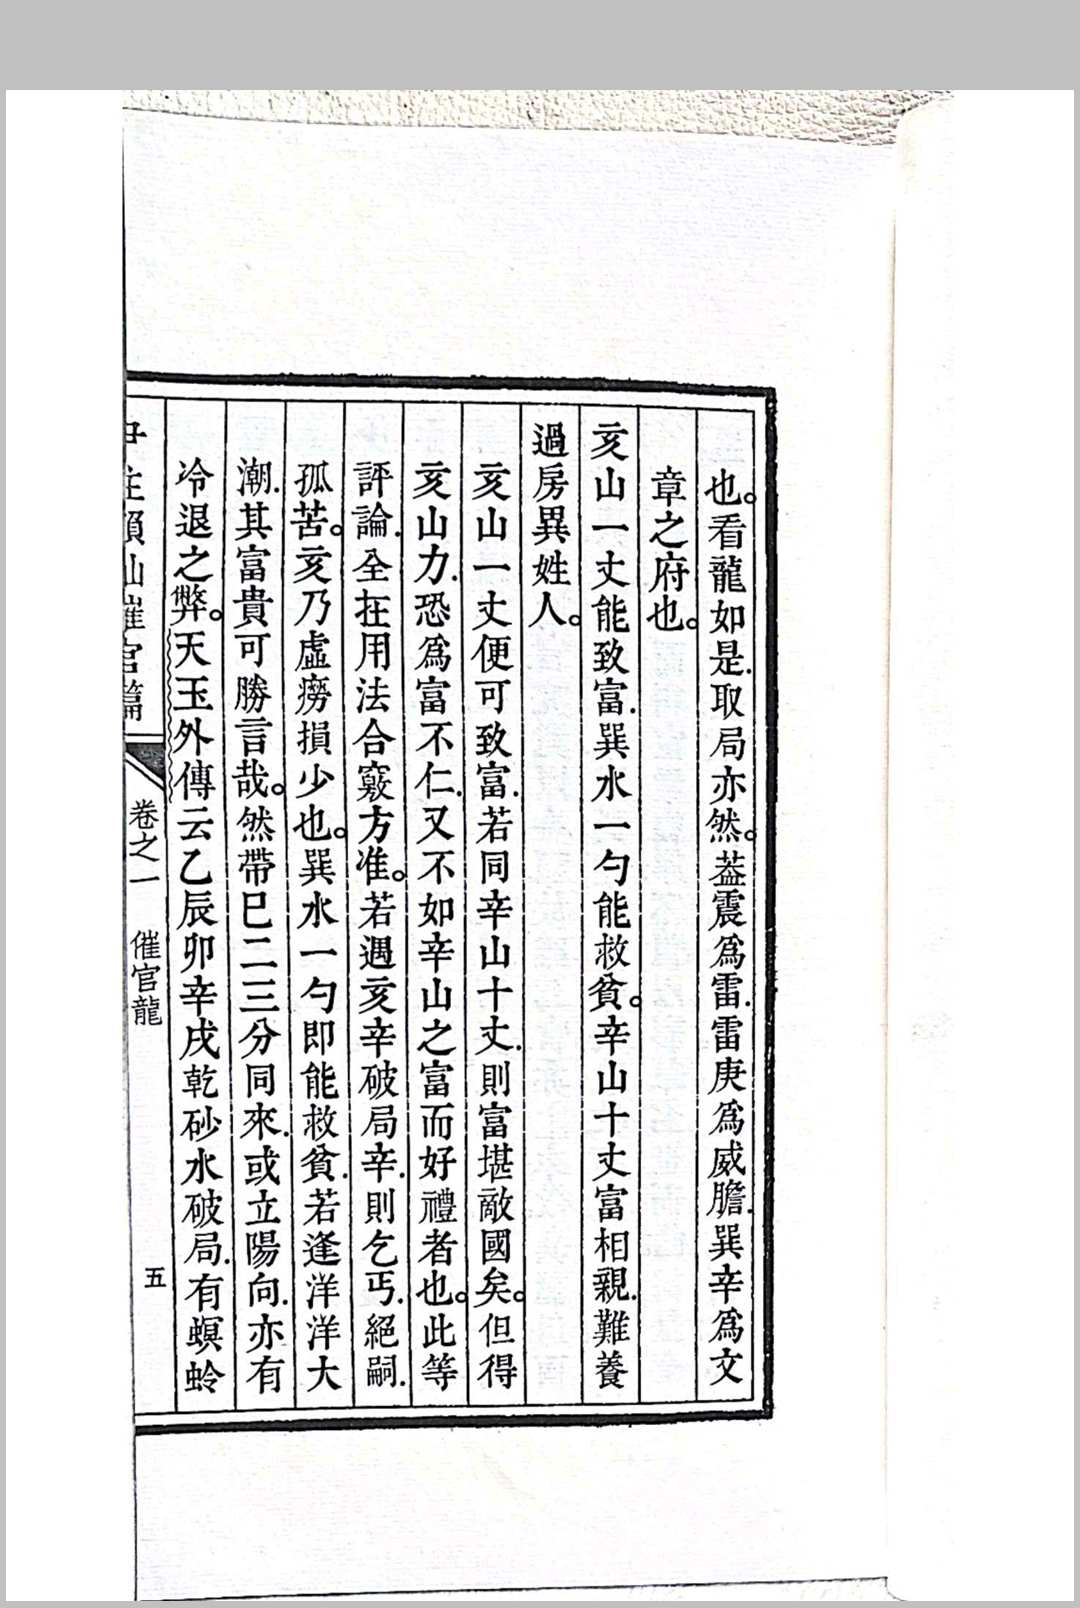 也。看龍如是.取局亦然。葢震爲雷.雷庚爲威膽.巽辛爲文
章之府也。
亥山一丈能致富.巽水一勺能救貧。辛山十丈富相親.難養
過房異姓人。
亥山一丈便可致富.若同辛山十丈.則富堪敵國矣。但得
亥山力.恐爲富不仁.又不如辛山之富而好禮者也。此等
評論.全在用法合竅方准。若遇亥辛破局辛.則乞丐.絕嗣.
孤苦。亥乃虛癆損少也。巽水一勺即能救貧.若逢洋洋大
潮.其富貴可勝言哉。然帶巳二三分同來.或立陽向.亦有
冷退之弊。天玉外傳云乙辰卯辛戌乾砂水破局.有螟蛉
催官篇
卷之一 催官龍
五